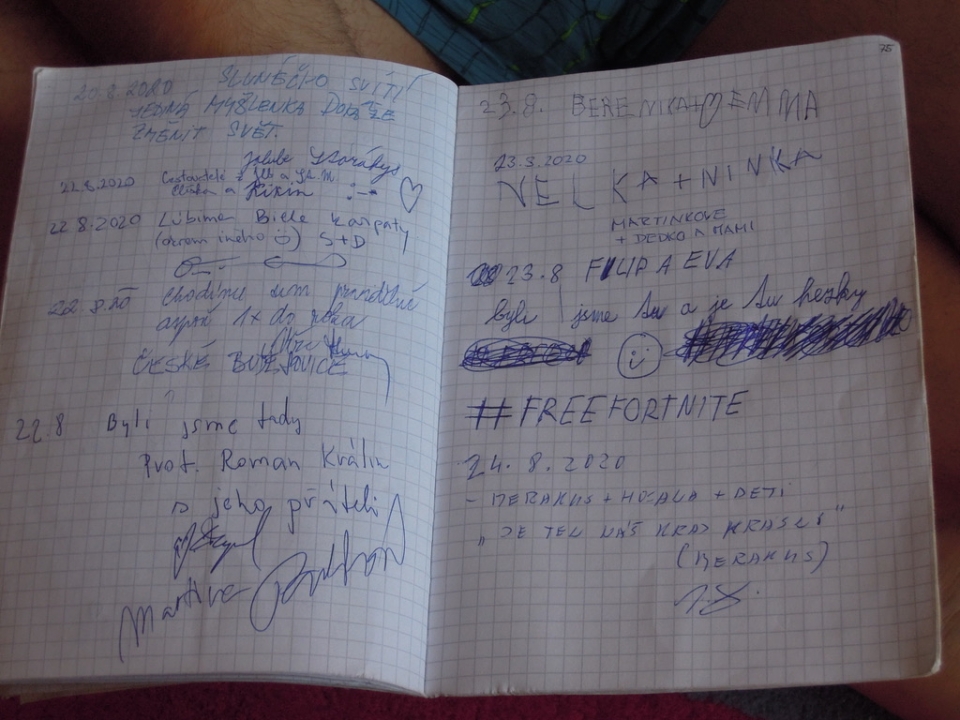 20.8.2020 SLUNÉČKO SVÍTÍ
JEDNA MYŠLENKA DOKÁŽE
ZMĚNIT SVĚT.
22.8.2020
22.8.2020 Ľúbime Biele Karpaty
(okrem iného) S+D
22.8.20 Chodíme sem pravidelně
aspoň 1x do roka
ČESKÉ BUDĚJOVICE
22.8 Byli jsme tady
Prof. Roman Králik
s jeho přáteli
Martina
75
23.8. BERENIKA+EMMA
23.8.2020
NELKA+NINKA
MARTINKOVE
+ DEDKO A MAMI
23.8 FILIP A EVA
byli jsme tu a je tu hezky
#FREEFORTNITE
24.8.2020
+ DETI
"JE TEN NÁŠ KRAJ KRÁSNÝ"